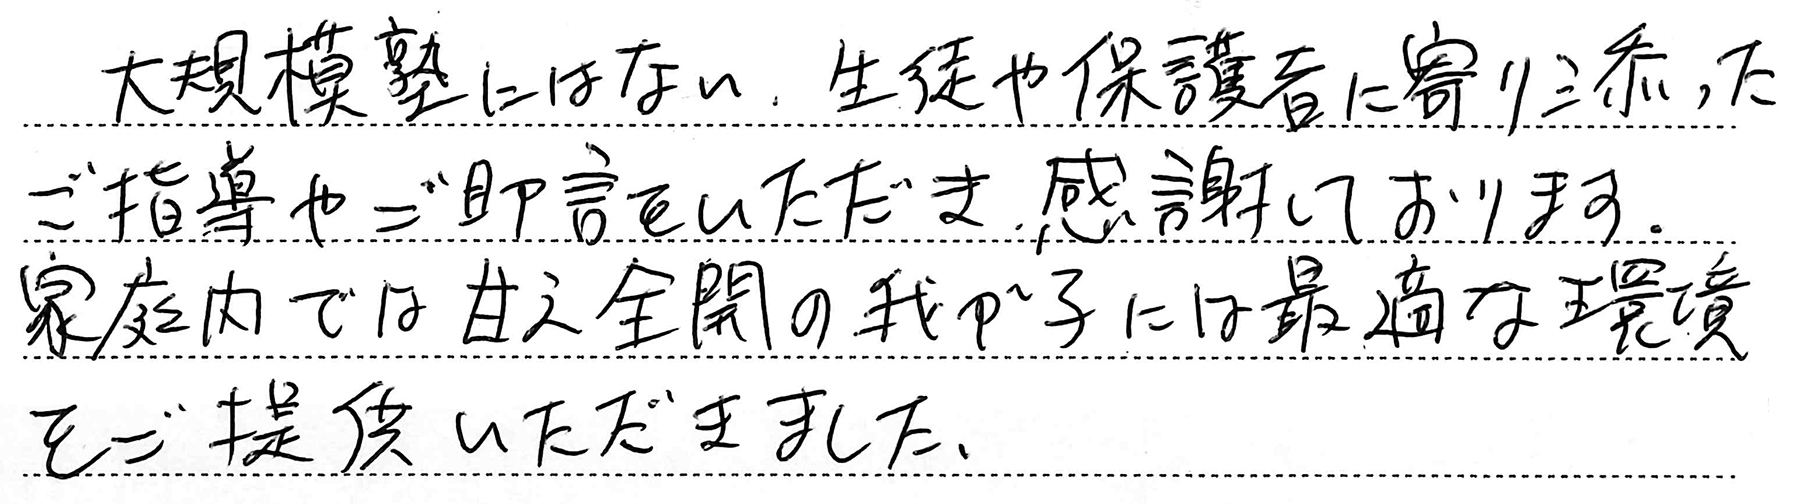 大規模塾にはない、生徒や保護者に寄り添った
ご指導やご助言をいただき、感謝しております。
家庭内では甘え全開の我が子には最適な環境
をご提供いただきました。